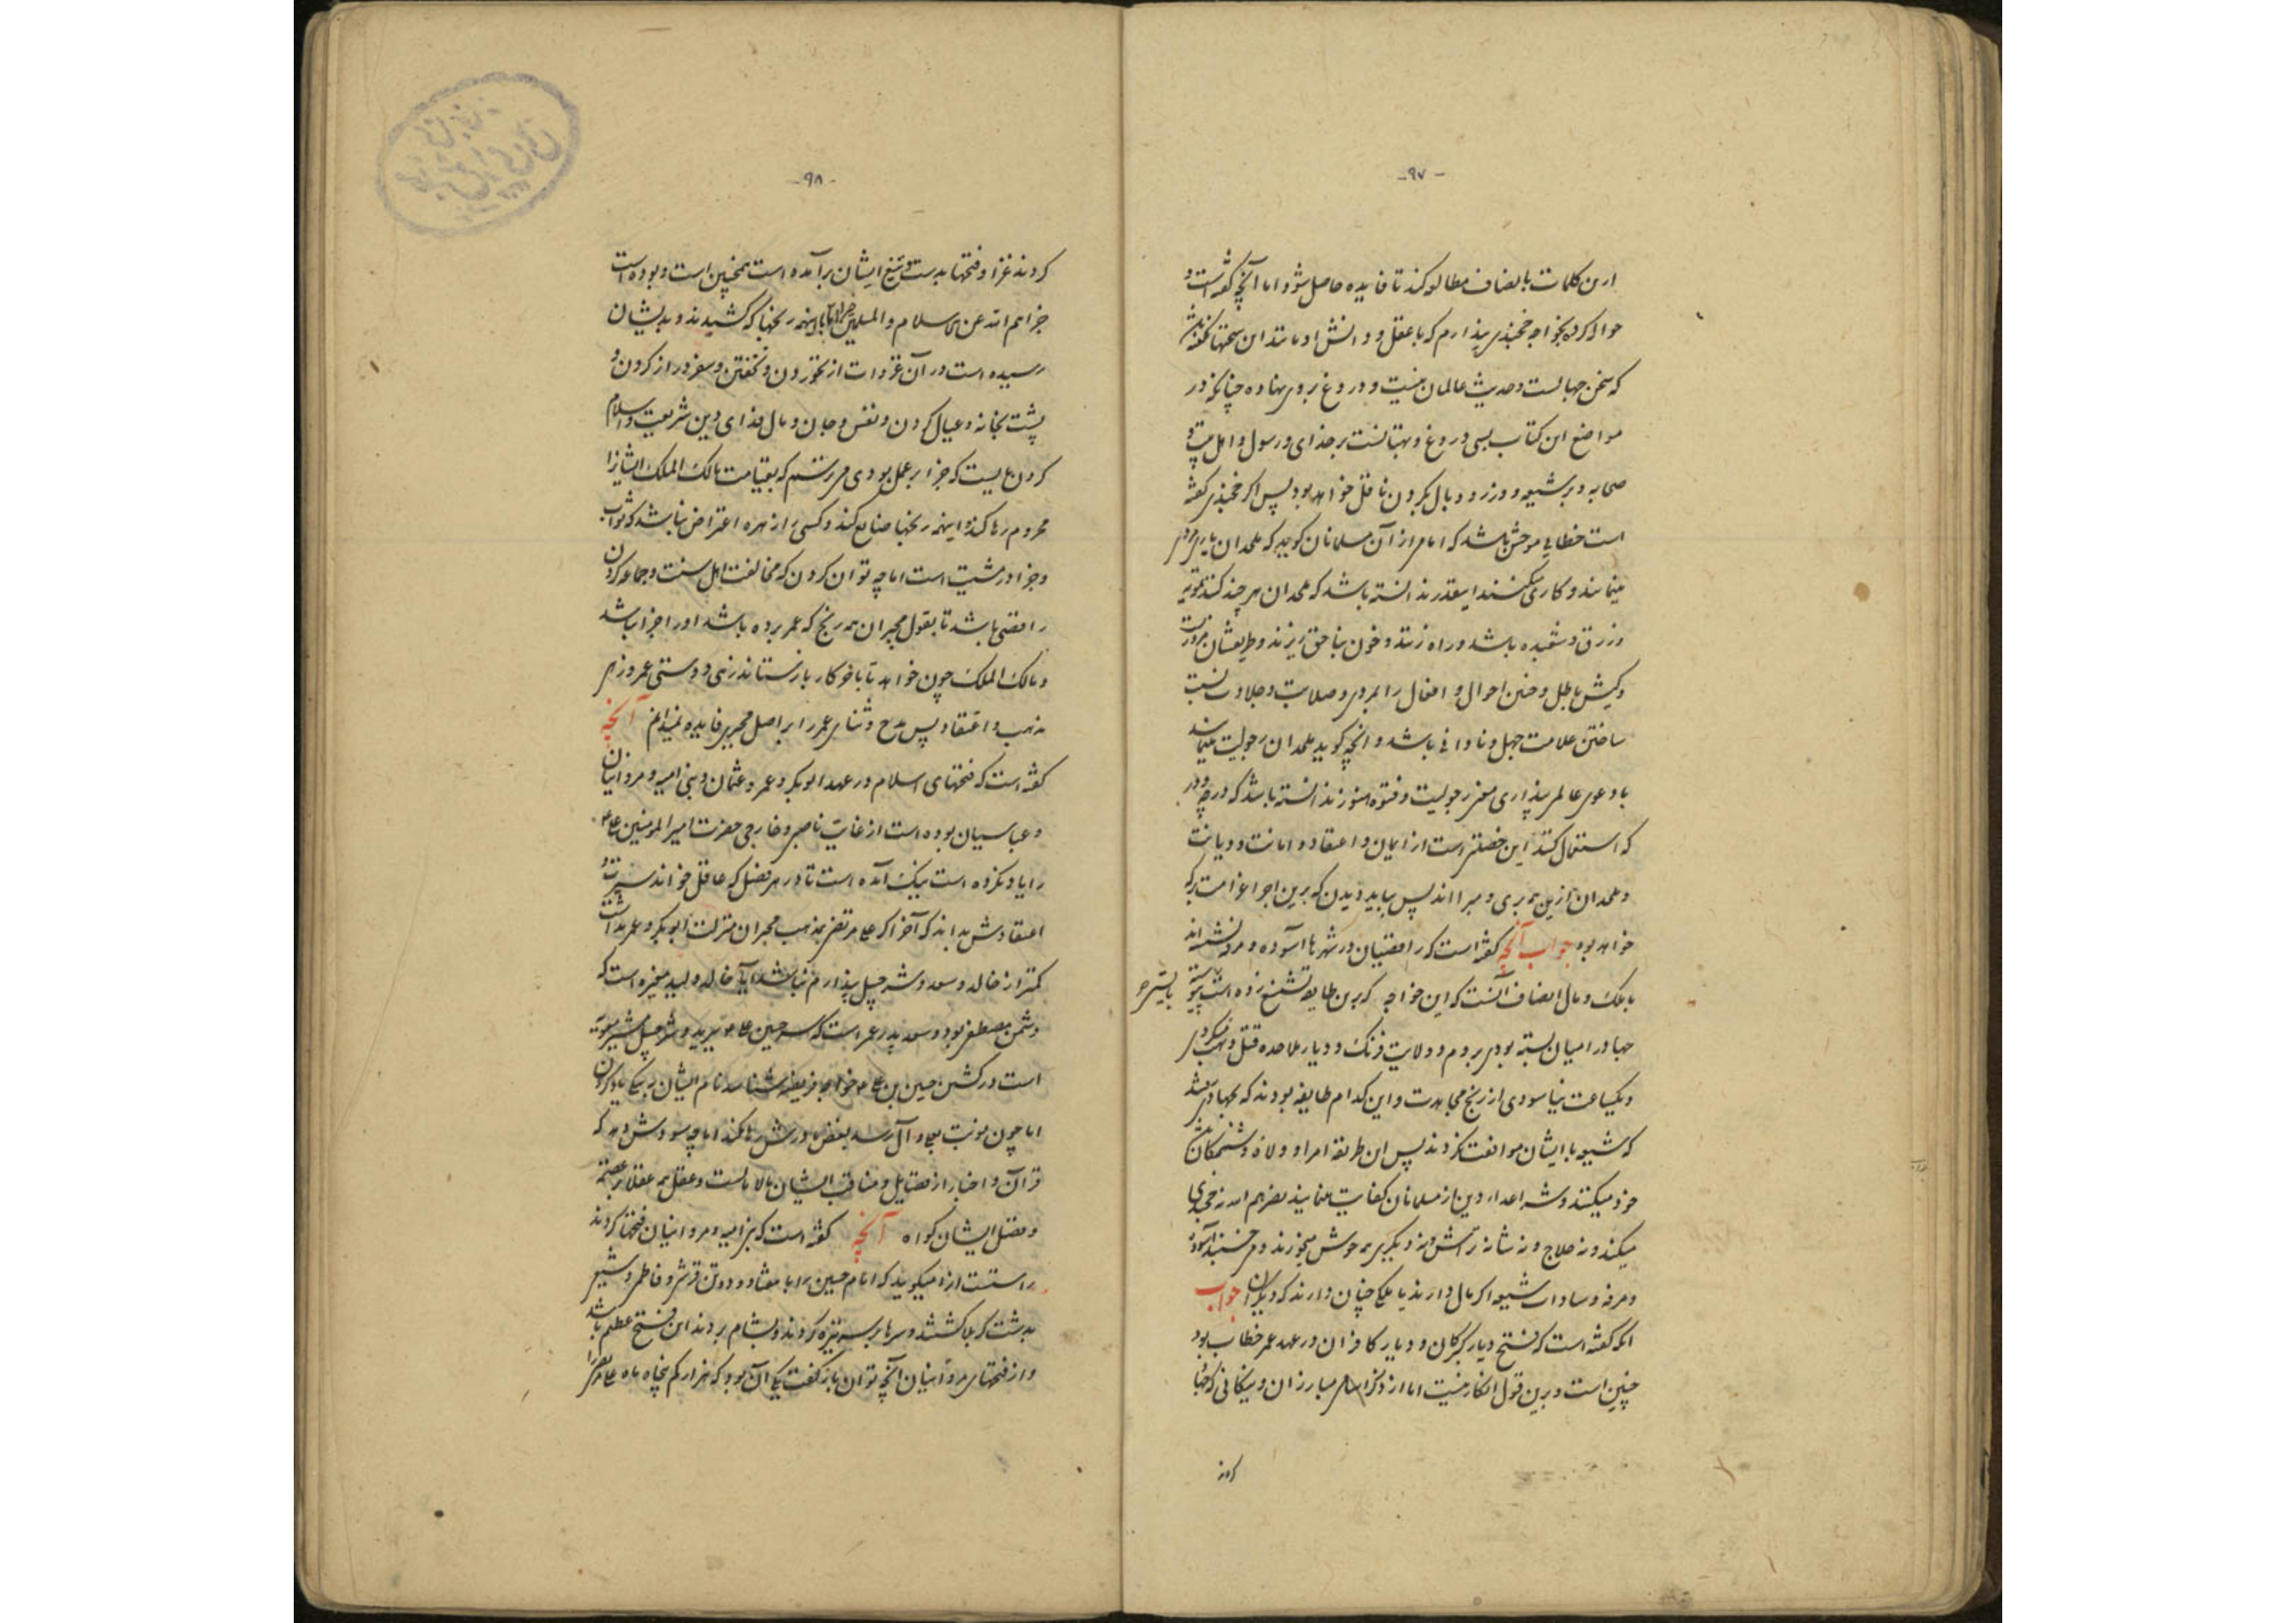 -۹۷-
ازین کلمات بانصاف مطالعه کند تا فایده حاصل شود اما آنچه گفته است و
حواله کرده بخواجه خجندی پندارم که با عقل و دانش او مانند این سخنها نگفته باشد
که سخن جهالست و حدیث عالمان نیست و دروغ بروی نهاده چنانکه در
مواضع این کتاب بسی دروغ و بهتانست بر خدای و رسول و اهل بیت و
صحابه و بر شیعه و وزر و وبال بگردن ناقل خواهد بود پس اگر خجندی گفته
است خطایی موحش باشد که امام از آن مسلمانان گوید که ملحدان باری مردی
مینمایند و کاری میکنند اینقدر ندانسته باشد که ملحدان هر چند کنند تزویر
و زرق و شعبده باشد و راه زنند و خون بناحق ریزند و طریقشان مزورست
و کیش باطل و چنین احوال و افعال را بمردی و صلابت و جلادت نسبت
ساختن علامت جهل و نادانی باشد و آنچه گوید ملحدان رجولیت مینمایند
با دعوی عالمی پنداری معنی رجولیت و فتوه هنوز ندانسته باشد که در چه و در
که استعمال کنند این خصلتی است از ایمان و اعتقاد و امانت و دیانت
و ملحدان ازین همه بری و مبرا اند پس بباید دیدن که برین اجرا غرامت برکه
خواهد بود جواب آنچه گفته است که رافضیان در شهرها آسوده و مرفه نشسته اند
با ملک و مال انصاف آنست که این خواجه که برین طایفه تشنیع زده است پیوسته
جهاد را میان بسته بودی بروم و ولایت فرنگ و دیار ملاحده قتل و نهب میکردی
و یکساعت نیاسودی از رنج مجاهدت و این کدام طایفه بودند که بجهاد میشدند
که شیعه با ایشان موافقت نکردند پس این طریقه امرا و ولاة و شمکانت
خود میکنند و شر اعداء دین از مسلمانان کفایت مینمایند نصرهم الله نه خجندی
میکند و نه حلاج و نه شانه تراش و نه دیگری همه خوش میخورند و می خسبند آسوده
و مرفه و سادات شیعه اگر مال دارند یا ملکی چنان دارند که دیگران جواب
آنکه گفته است که فتح دیار گبرکان و دیار کافران در عهد عمر خطاب بود
چنین است و برین قول انکار نیست اما از ذکر اسامی مبارزان و نیکانی که جهاد
کردند
-۹۸-
کردند غزا و فتحها بدست و تیغ ایشان برآمده است همچنین است و بوده است
جزاهم الله عن الاسلام والمسلمین خیرا اما با اینهمه رنجها که کشیدند و بدیشان
رسیده است در آن غزوات از نخوردن و نخفتن و سفر دراز کردن و
پشت بخانه و عیال کردن و نفس و جان و مال فدای دین شریعت و اسلام
کردن بایست که جزا بر عمل بودی مترسم که بقیامت مالک الملک ایشانرا
محروم رها کند و اینهمه رنجها ضایع کند و کسی را زهره اعتراض نباشد که ثواب
و جزا در مشیت است اما چه توان کردن که مخالفت اهل سنت و جماعه کردن
رافضی باشد تا بقول مجبران همه رنج که عمر برده باشد او را جزا نباشد
و مالک الملک چون خواهد تا با خود کار بازستاند زهی دوستی عمر و زهی
مذهب و اعتقاد پس مدح و ثنای عمر را بر اصل مجبری فایده نمیدانم آنچه
گفته است که فتحهای اسلام در عهد ابوبکر و عمر و عثمان و بنی امیه و مروانیان
و عباسیان بوده است از غایت ناصبی و خارجی حضرت امیرالمومنین علی ع
را یاد نکرده است نیک آمده است تا در هر فصل که عاقل خواند سیرت و
اعتقادش بداند که آخر اگر علی مرتضی بمذهب مجبران منزلت ابوبکر و عمر نداشت
کمتر از خالد و سعد و شرحبیل پندارم نباشد آیا خالد ولید مغیره است که
دشمن مصطفی بود و سعد پدر عمر است که سر حسین علی ع برید و شرحبیل مشیر معویه
است در کشتن حسین بن علی ع خواجه فریضه شناسد نام ایشان به نیکی یاد کردن
اما چون نوبت بعلی و آل رسد بغض مادرش رها نکند اما چه سودش دهد که
قرآن و اخبار از فضایل و مناقب ایشان مالا مالست و عقل همه عقلا بر عصمة
و فضل ایشان گواه آنچه گفته است که بنی امیه و مروانیان فتحها کردند
راستست ازو میگوید که امام حسین را با هفتاد و دو تن قرشی و فاطمی و شیعی
بدشت کربلا کشتند و سرها بر سر نیزه کردند و بشام بردند این فتح عظیم باشد
و از فتحهای مروانیان آنچه توان بازگفت یکی آن بود که هزار کم پنجاه ماه علی مرتضی را